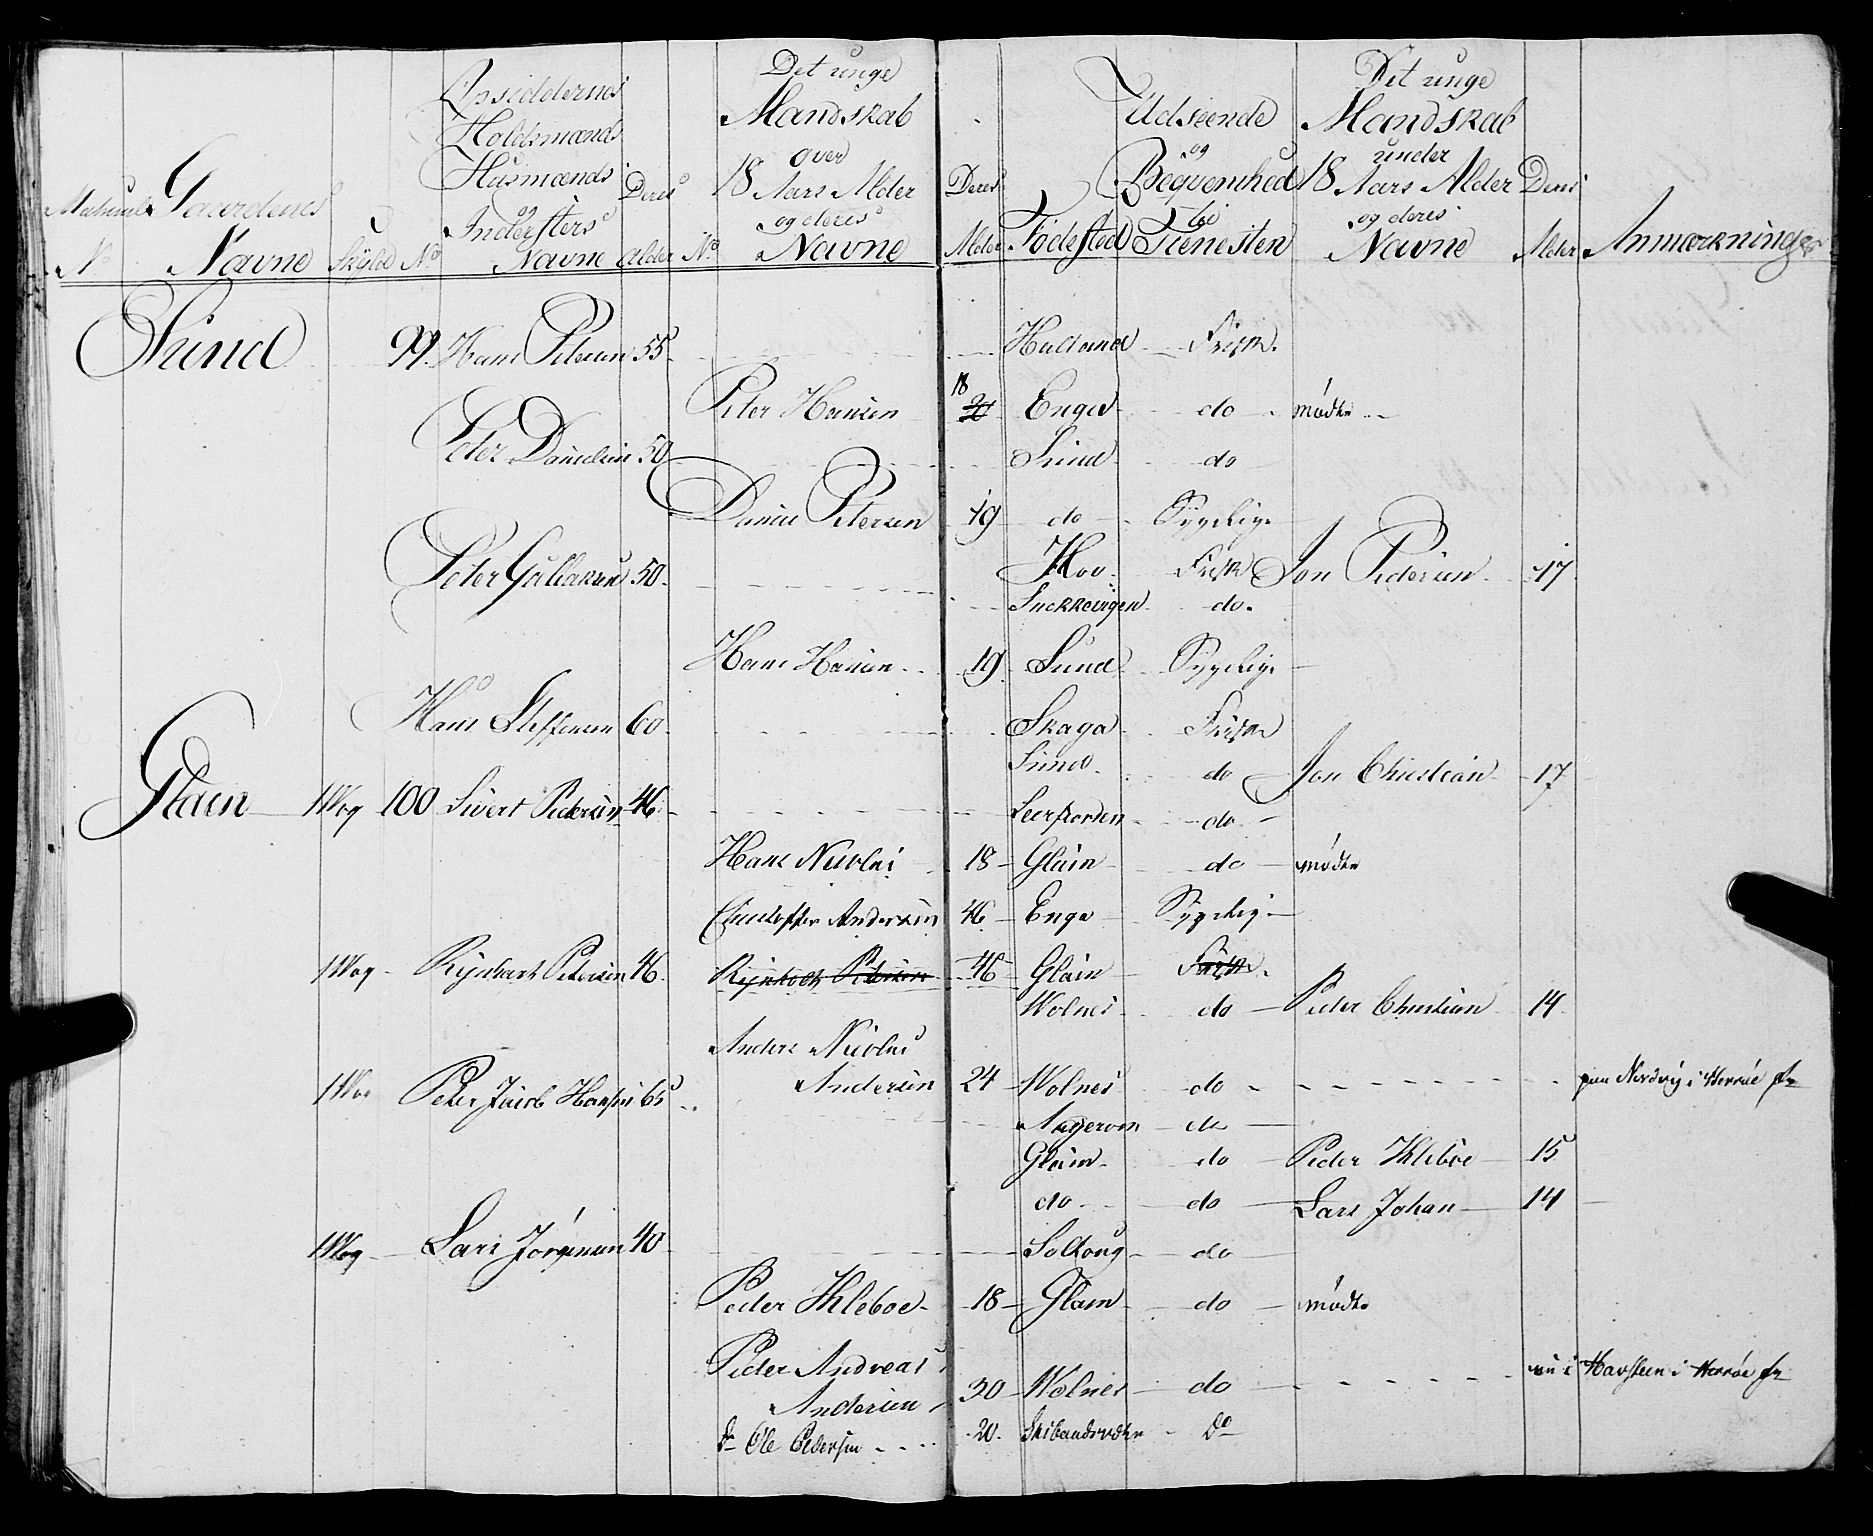 Matricul Gaardenes Opsiddernes Det unge Udseende Det unge
Holdsmænds Mandskab og Mandskab
Huusmænds Deres over Deres Beqvemhed under Deres
og 18 Aars Alder til 18 Aars Alder
Indersters og deres Fødested og deres
No Navne Skyld No Navne Alder No Navne Alder Tienesten Navne Alder Anmærkninger
Sund 99. Hans Petersen 55 Halland Frisk.
Peter Hansen 18 20 Enga do mødte
Peter Danielsen 50 Sund do
Daniel Petersen 19 do Sygelig
Peter Gulliksen 50 Hov Frisk Jon Pedersen 17
do.
Hans Hansen 19 Sund Sygelig
Hans Steffensen 60 Skaga Frisk
Sund do Jon Christian 17
Glain 1 Wog 100 Sivert Pedersen 46 do
Hans Nicolai 18 Glain do mødte
Christoffer Andersen 46 Enga Sygelig
1 Wog Rejnhart Petersen 46 Rejnholt Petersen 46 Glain Frisk.
Wolnes do Peder Christian 14
Anders Nicolai
1 Wog Peter Jacob Hansen 65 Andersen 24 Wolnes do paa Nordvig i Herrøe
Aagervon do
Glain do Peder Kleboe 15
do do Lars Johan 14
1 Wog Lars Jørgensen 40 Soltoug do
Peder Kleboe 18 Glain do mødte
Peder Andreas
Andersen 30 Wolnes do nu i Havsteen i Herrøe
do Ole Pedersen 20. do